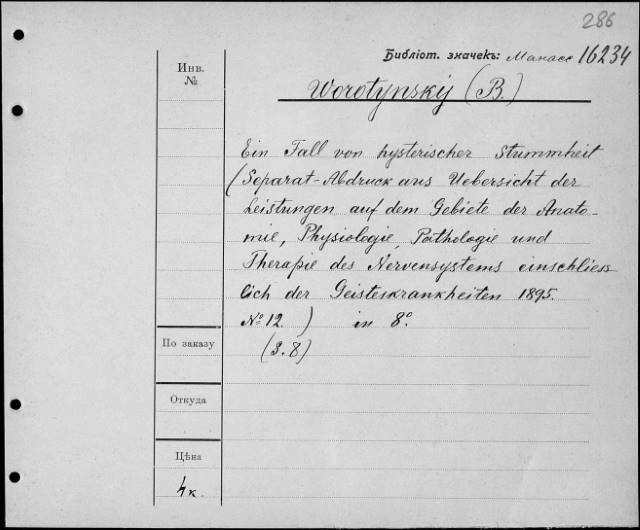 286
Библіот. значекъ: Манасс 16234
Инв.
№
Worotynskij (B.)
Ein Fall von hysterischer Stummheit
(Separat-Abdruck aus Uebersicht der
Leistungen auf dem Gebiete der Anato-
mie, Physiologie, Pathologie und
Therapie des Nervensystems einschliess
lich der Geisteskrankheiten 1895.
№ 12. ) in 8°.
(S. 8)
По заказу
Откуда
Цѣна
4 к.